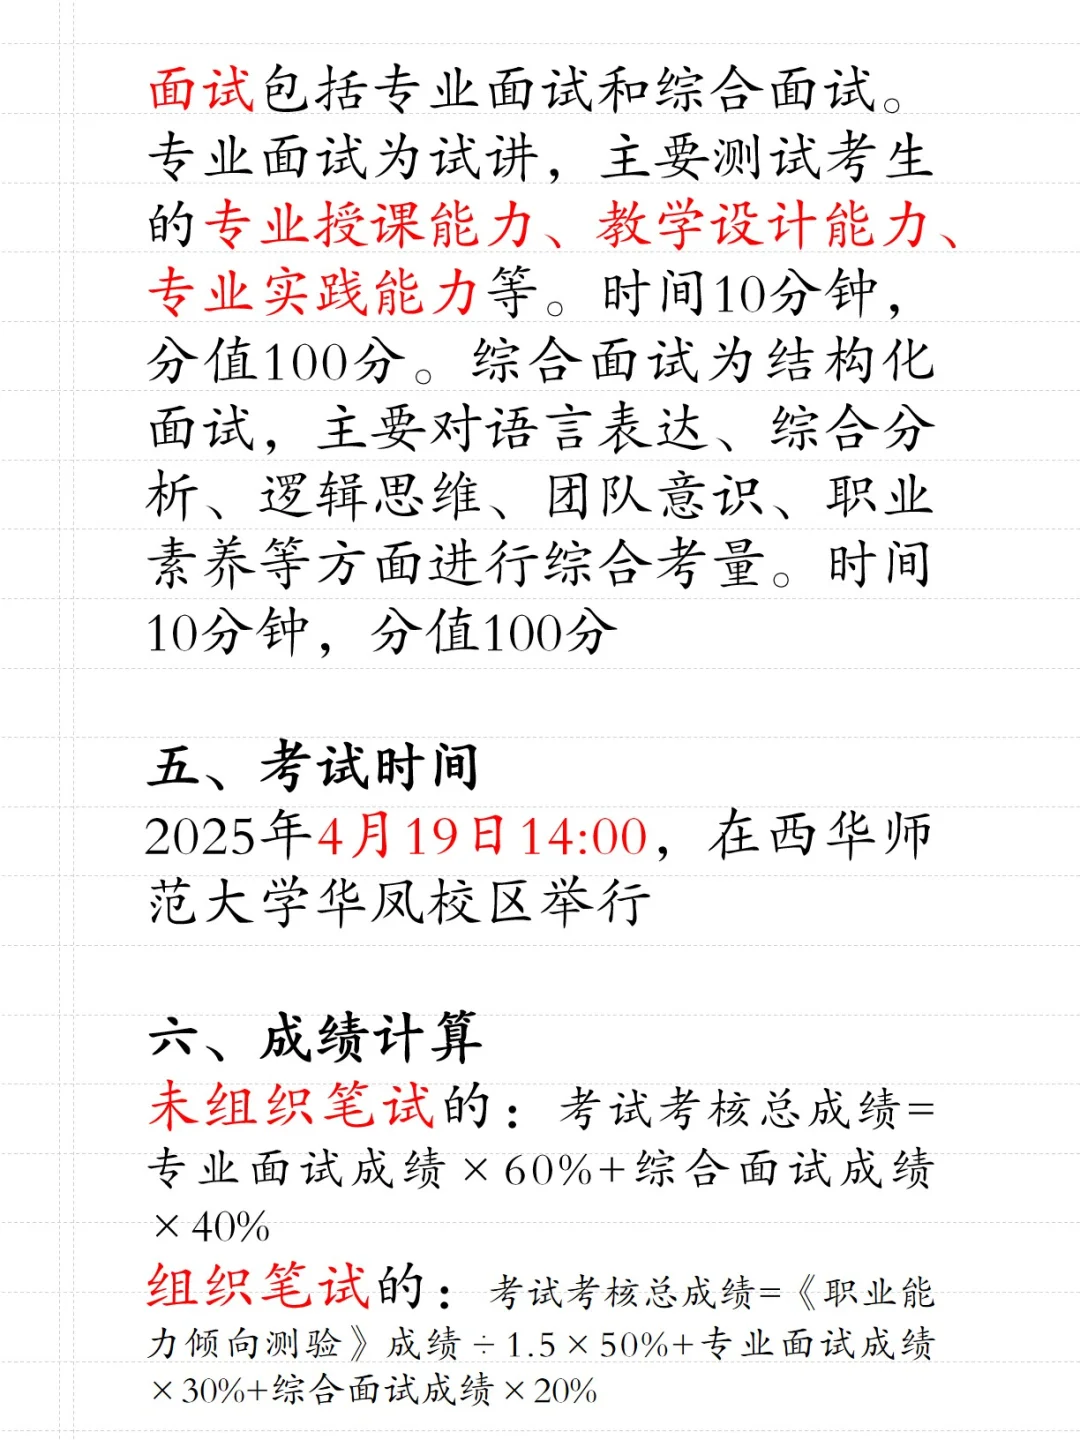 面试包括专业面试和综合面试。
专业面试为试讲，主要测试考生
的专业授课能力、教学设计能力、
专业实践能力等。时间10分钟，
分值100分。综合面试为结构化
面试，主要对语言表达、综合分
析、逻辑思维、团队意识、职业
素养等方面进行综合考量。时间
10分钟，分值100分
五、考试时间
2025年4月19日14:00，在西华师
范大学华凤校区举行
六、成绩计算
未组织笔试的：考试考核总成绩=
专业面试成绩×60%+综合面试成绩
×40%
组织笔试的：考试考核总成绩=《职业能
力倾向测验》成绩÷1.5×50%+专业面试成绩
×30%+综合面试成绩×20%